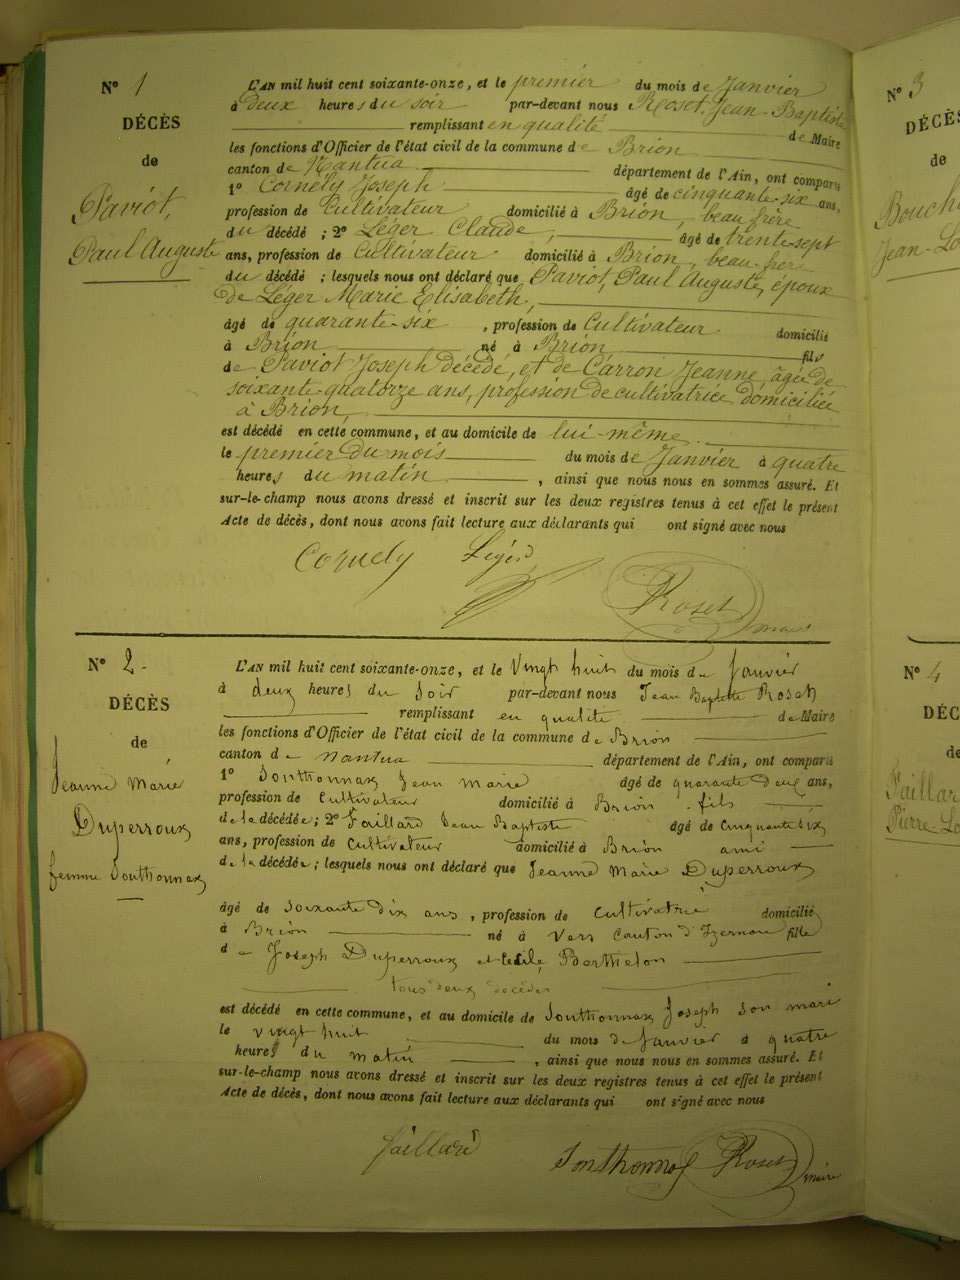 N° 1
DÉCÈS
de
Paviot,
Paul Auguste
L'AN mil huit cent soixante-onze, et le premier du mois de Janvier
à deux heures du soir par-devant nous Roset, Jean-Baptiste
remplissant en qualité de Maire
les fonctions d'Officier de l'état civil de la commune de Brion
canton de Nantua département de l'Ain, ont comparu
1° Cornély Joseph âgé de cinquante-six ans,
profession de Cultivateur domicilié à Brion, beau frère
du décédé ; 2° Léger Claude, âgé de trente-sept
ans, profession de Cultivateur domicilié à Brion, beau-frère
du décédé ; lesquels nous ont déclaré que Paviot, Paul Auguste, époux
de Léger Marie Elisabeth,
âgé de quarante-six, profession de Cultivateur domicilié
à Brion né à Brion fils
de Paviot Joseph décédé, et de Carron Jeanne, âgée de
soixante-quatorze ans, profession de cultivatrice domiciliée
à Brion,
est décédé en cette commune, et au domicile de lui-même
le premier du mois du mois de Janvier à quatre
heures du matin, ainsi que nous nous en sommes assuré. Et
sur-le-champ nous avons dressé et inscrit sur les deux registres tenus à cet effet le présent
Acte de décès, dont nous avons fait lecture aux déclarants qui ont signé avec nous
Cornely Léger
Roset maire
N° 2
DÉCÈS
de
Jeanne Marie
Duperroux
femme Sonthonnax
L'AN mil huit cent soixante-onze, et le Vingt huit du mois de Janvier
à deux heures du Soir par-devant nous Jean Baptiste Roset
remplissant en qualité de Maire
les fonctions d'Officier de l'état civil de la commune de Brion
canton de Nantua département de l'Ain, ont comparu
1° Sonthonnax Jean Marie âgé de quarante deux ans,
profession de Cultivateur domicilié à Brion fils
de la décédée ; 2° Faillard Jean Baptiste âgé de Cinquante six
ans, profession de Cultivateur domicilié à Brion ami
de la décédée ; lesquels nous ont déclaré que Jeanne Marie Duperroux
âgé de Soixante dix ans, profession de Cultivatrice domicilié
à Brion né à Vers Canton d'Izernore fille
de Joseph Duperroux et Cécile Berthelon
tous deux décédés
est décédé en cette commune, et au domicile de Sonthonnax Joseph Son mari
le vingt huit du mois de Janvier à quatre
heures du matin, ainsi que nous nous en sommes assuré. Et
sur-le-champ nous avons dressé et inscrit sur les deux registres tenus à cet effet le présent
Acte de décès, dont nous avons fait lecture aux déclarants qui ont signé avec nous
faillard Sonthonnax Roset maire
N° 3
DÉCÈS
de
Bouch
Jean-Lo
N° 4
DÉC
de
Faillar
Pierre-Lo